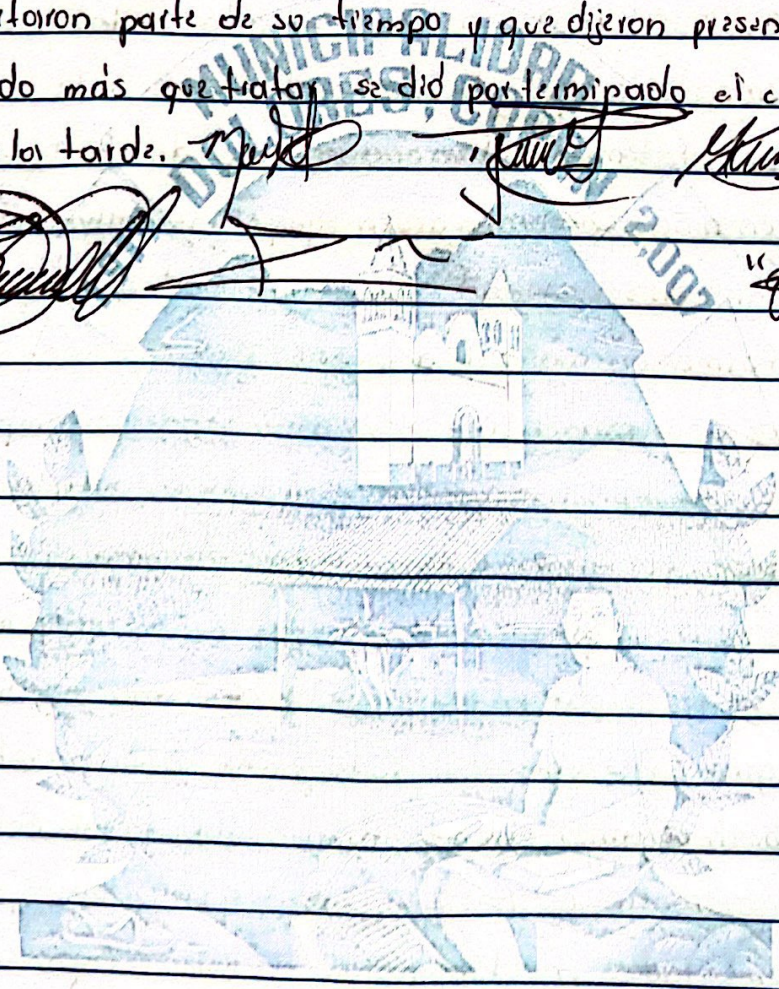 taron parte de su tiempo y que dijeron presen
do más que tratar se dió por terminado el c
la tarde.
MUNICIPALIDAD
DOLORES, COPAN 2,007